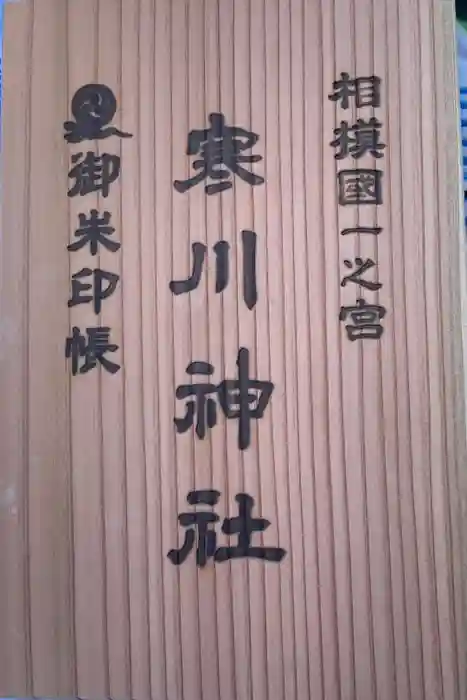 相摸國一之宮
寒川神社
御朱印帳